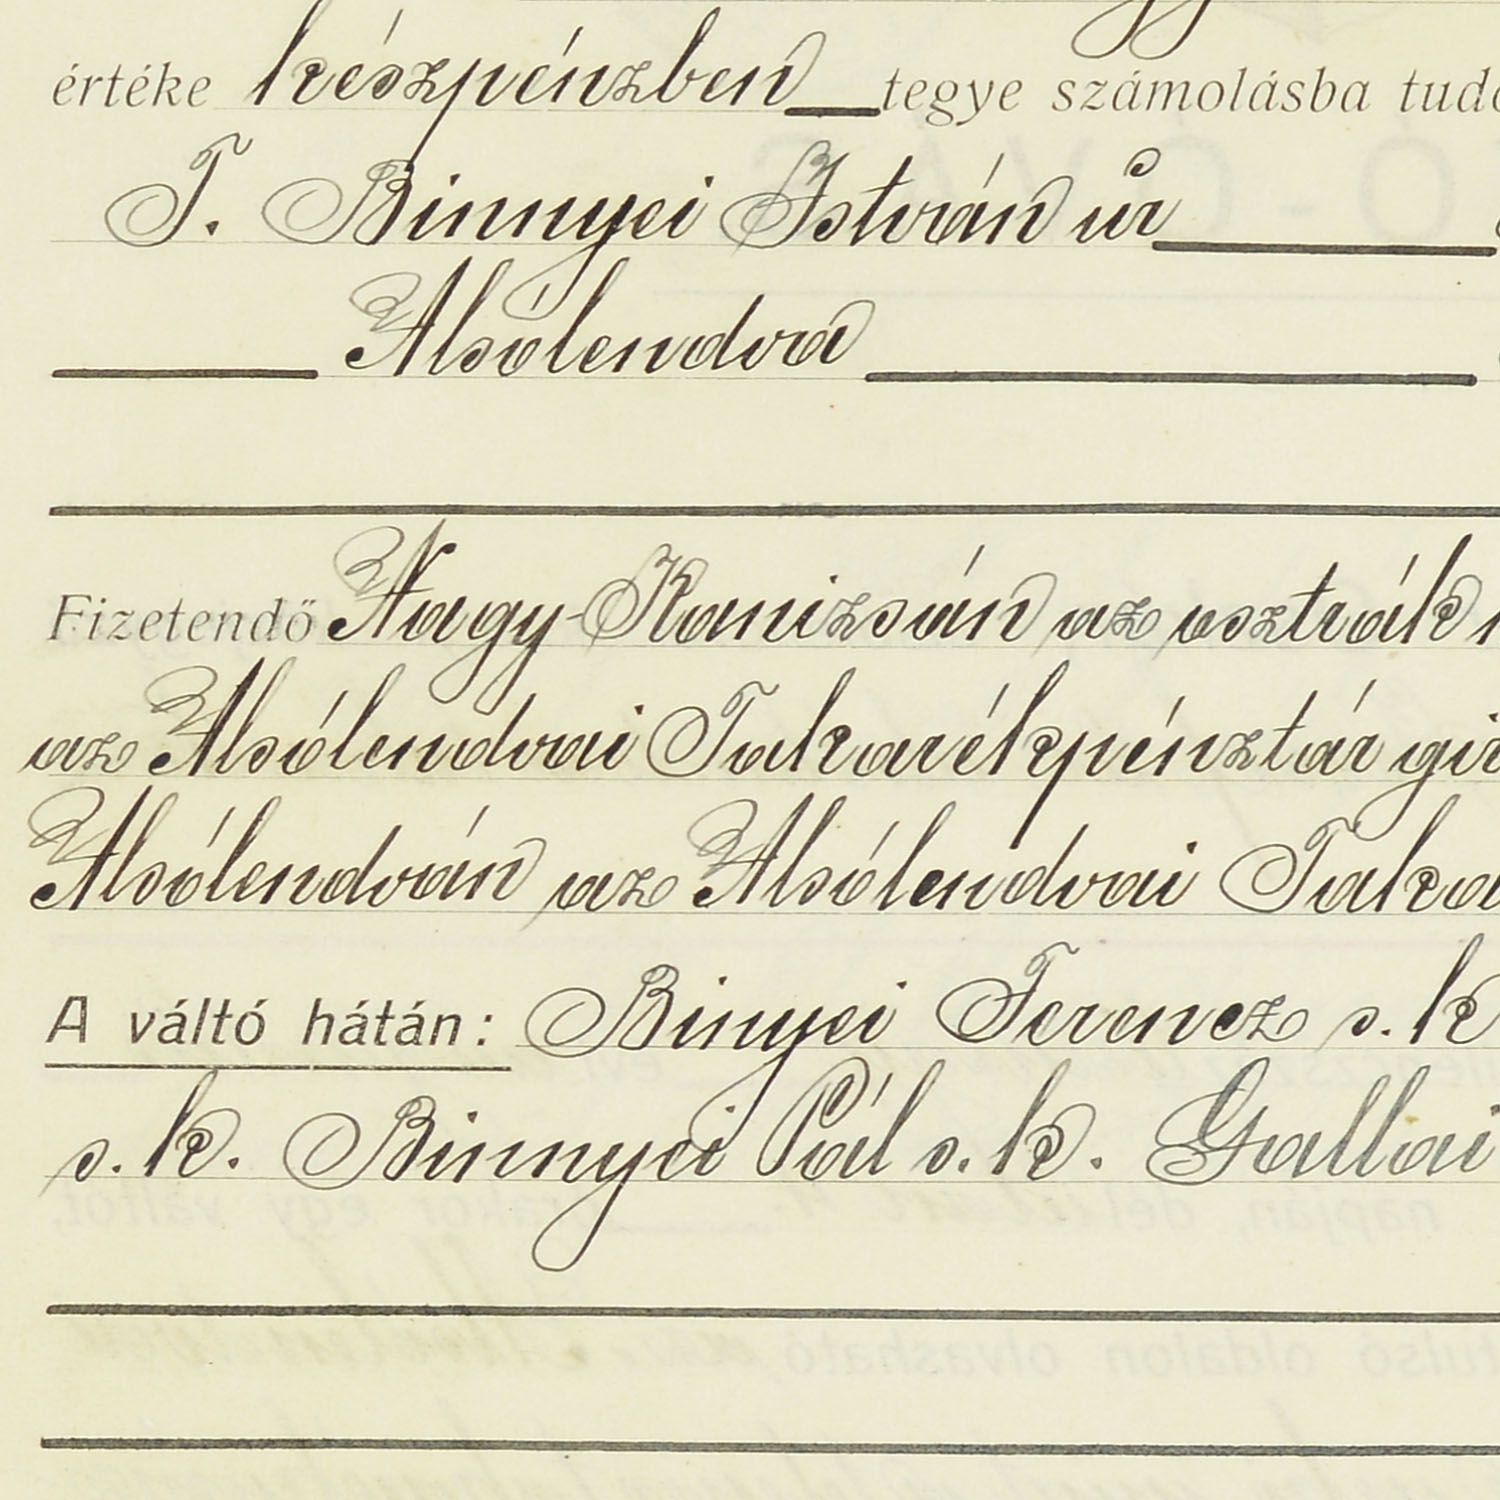 értéke készpénzben tegye számolásba
T. Binnyei István úr
Alsólendva
Fizetendő Nagy-Kanizsán az osztrák
az Alsólendvai Takarékpénztár
Alsólendván az Alsólendvai
A váltó hátán: Binyei Ferencz s. k
s. k. Binnyei Pál s. k. Gallai